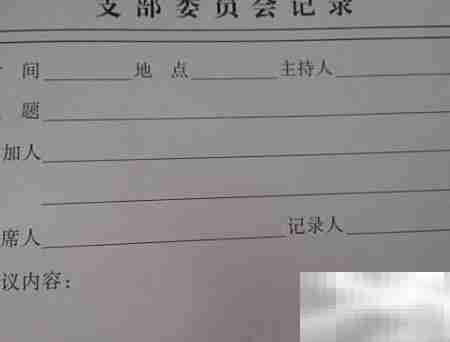 支部委员会记录
间 地 点 主持人
题
加人
席人 记录人
议内容：